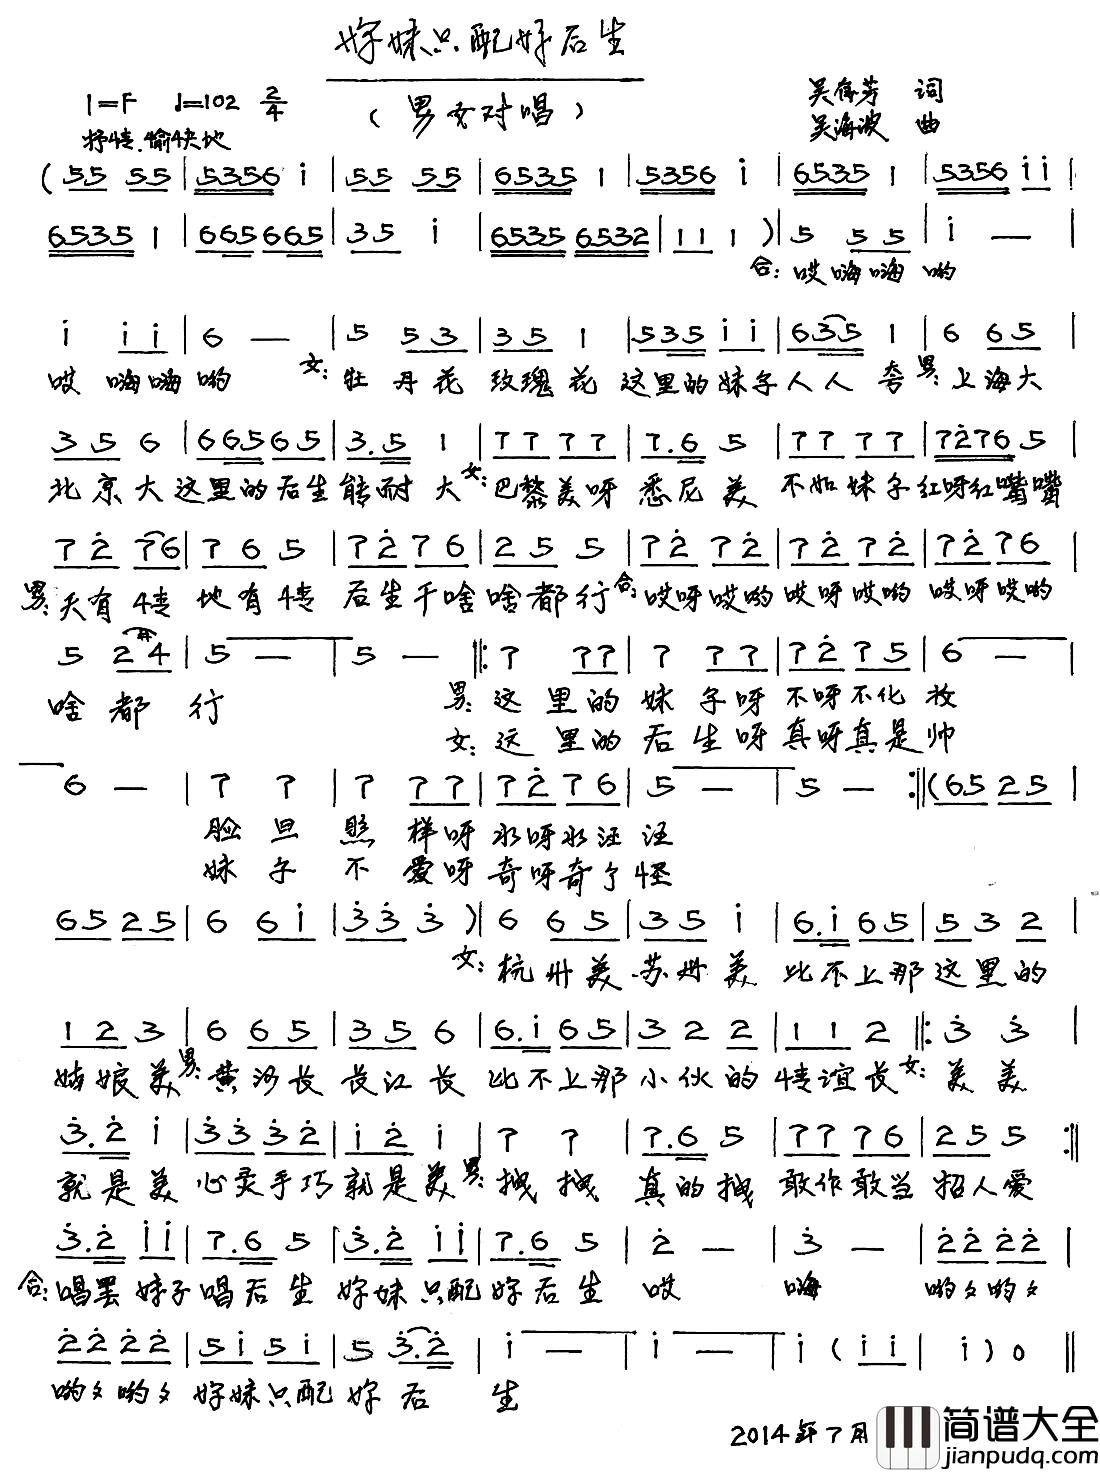 好妹只配好后生
(男女对唱)
1=F ♩=102 2/4
抒情.愉快地
吴存芳 词
吴海波 曲
(55 55|5356 i|55 55|6535 1|5356 i|6535 1|5356 ii|
6535 1|665 665|35 i|6535 6532|11 1)|5 55|i —|
合:哎嗨嗨哟
i ii|6 —|5 53|35 1|535 ii|635 1|6 65|
哎嗨嗨哟 女:牡丹花玫瑰花这里的妹子人人夸男:上海大
35 6|66565|3.5 1|77 77|7.6 5|77 77|7276 5|
北京大这里的后生能耐大女:巴黎美呀悉尼美不如妹子红呀红嘴嘴
72 76|76 5|72 76|25 5|72 72|72 72|72 76|
男:天有情地有情后生干啥啥都行合:哎呀哎哟哎呀哎哟哎呀哎哟
5 2#4|5 —|5 —|:7 77|7 77|72 75|6 —|
啥都行 男:这里的妹子呀不呀不化妆
女:这里的后生呀真呀真是帅
6 —|7 7|7 77|72 76|5 —|5 —:|(65 25|
脸旦照样呀水呀水汪汪
妹子不爱呀奇呀奇了怪
65 25|6 6i|33 3)|6 65|35 i|6.i 65|53 2|
女:杭州美苏州美比不上那这里的
12 3|6 65|35 6|6.i 65|32 2|11 2|:3 3|
姑娘美男:黄河长长江长比不上那小伙的情谊长女:美美
3.2 i|33 32|i2 i|7 7|7.6 5|77 76|25 5:|
就是美心灵手巧就是美男:拽拽真的拽敢作敢当招人爱
3.2 ii|7.6 5|3.2 ii|7.6 5|2 —|3 —|22 22|
合:唱罢妹子唱后生好妹只配好后生哎嗨哟々哟々
22 22|5i 5i|5 3.2|i —|i —|i (ii|i) 0‖
哟々哟々好妹只配好后生
2014年7月
简谱大全
jianpudq.com